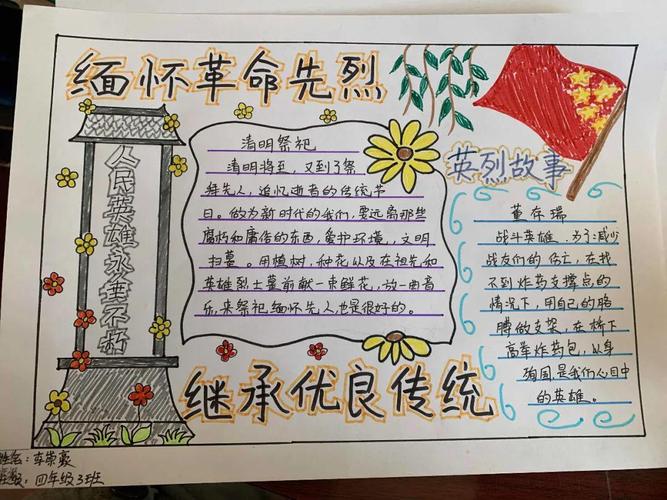 缅怀革命先烈
人民英雄永垂不朽
清明祭祀
清明将至，又到了祭
拜先人，追忆逝者的传统节
日。做为新时代的我们，要远离那些
腐朽和庸俗的东西，爱护环境，，文明
扫墓。用植树，种花以及在祖先和
英雄烈士墓前献一束鲜花，放一曲音
乐，来祭祀缅怀先人也是很好的。
英烈故事
董存瑞
战斗英雄、为了减少
战友们的伤亡，在找
不到炸药支撑点的
情况下，用自己的胳
膊做支架，在桥下
高举炸药包，以身
殉国是我们心目中
的英雄。
继承优良传统
姓名：李崇豪
班级：四年级3班